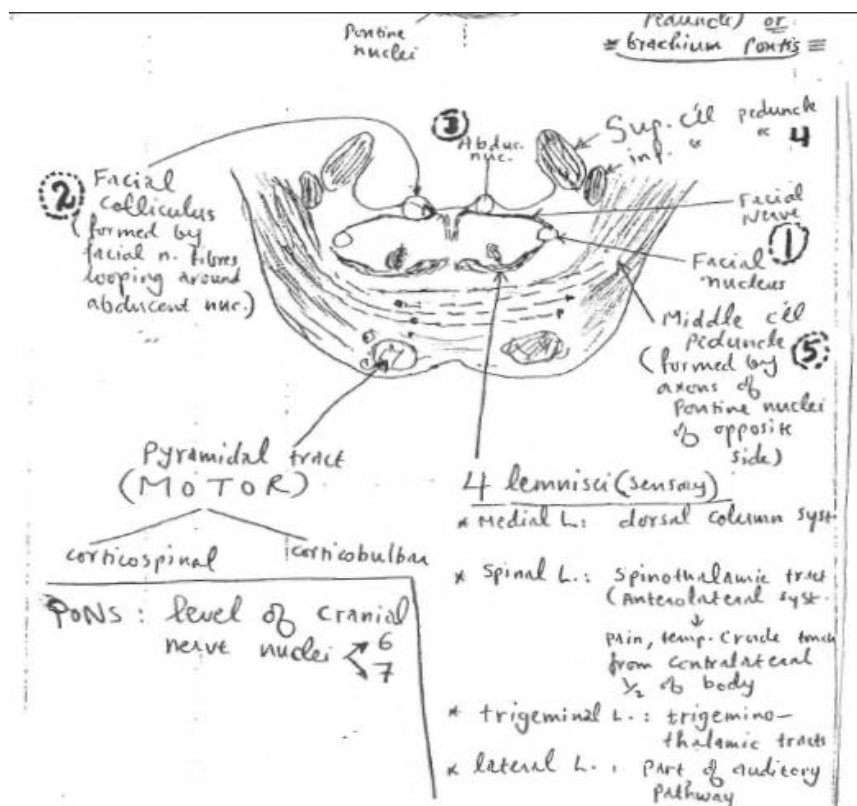 Pontine
nuclei
peduncle) or
= brachium Pontis =
3
Abduc.
nuc.
Sup. c'll peduncle
inf. " " 4
2
Facial
colliculus
(formed by
facial n. fibres
looping around
abducent nuc.)
Facial
Nerve
1
Facial
nucleus
Middle c'll
Peduncle
(formed by
axons of
Pontine nuclei
of opposite
side)
5
Pyramidal tract
(MOTOR)
corticospinal
corticobulbar
4 lemnisci (sensory)
* Medial L: dorsal column syst
* Spinal L.: Spinothalamic tract
(Anterolateral syst.
Pain, temp. Crude touch
from contralateral
1/2 of body
* trigeminal L.: trigemino-
thalamic tracts
* lateral L.: part of auditory
pathway
PONS: level of cranial
nerve nuclei
6
7